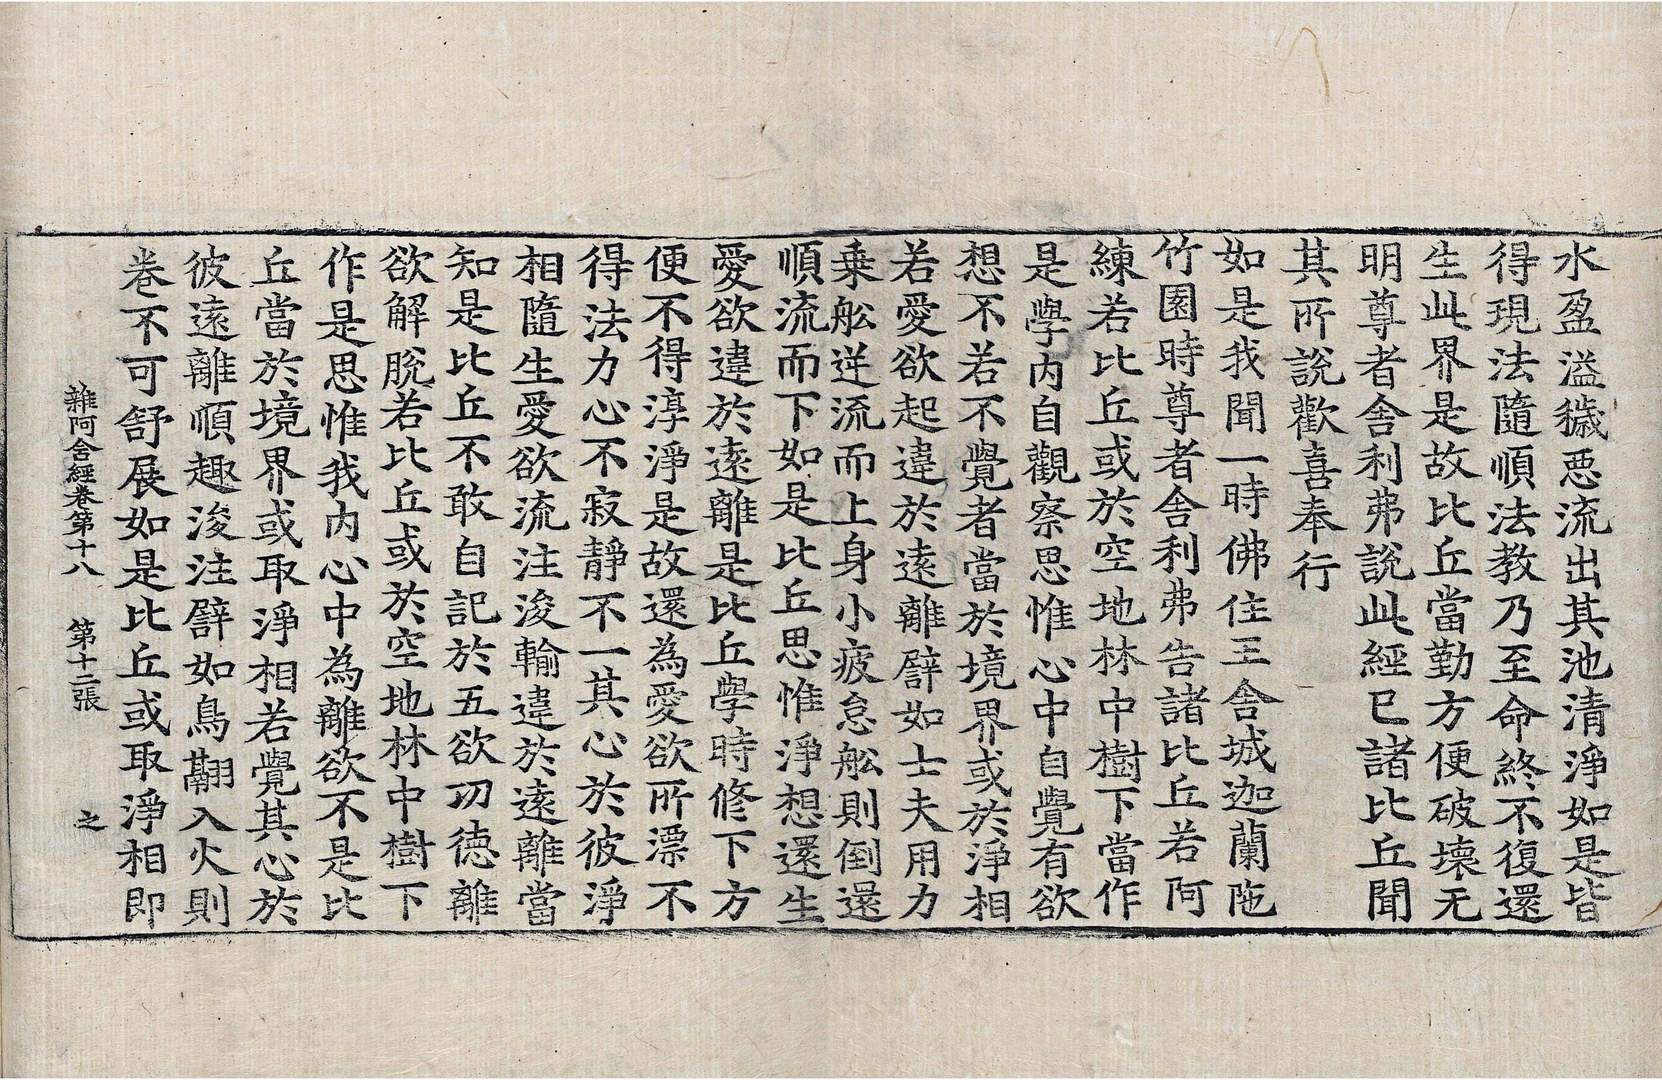 水盈溢穢惡流出其池清淨如是皆
得現法隨順法教乃至命終不復還
生此界是故比丘當勤方便破壞无
明尊者舍利弗說此經已諸比丘聞
其所說歡喜奉行
如是我聞一時佛住王舍城迦蘭陁
竹園時尊者舍利弗告諸比丘若阿
練若比丘或於空地林中樹下當作
是學內自觀察思惟心中自覺有欲
想不若不覺者當於境界或於淨相
若愛欲起違於遠離譬如士夫用力
乘舩逆流而上身小疲怠舩則倒還
順流而下如是比丘思惟淨想還生
愛欲違於遠離是比丘學時修下方
便不得淳淨是故還為愛欲所漂不
得法力心不寂靜不一其心於彼淨
相隨生愛欲流注浚輸違於遠離當
知是比丘不敢自記於五欲功德離
欲解脫若比丘或於空地林中樹下
作是思惟我內心中為離欲不是比
丘當於境界或取淨相若覺其心於
彼遠離順趣浚注譬如鳥翮入火則
卷不可舒展如是比丘或取淨相即
雜阿含經卷第十八 第十二張 之